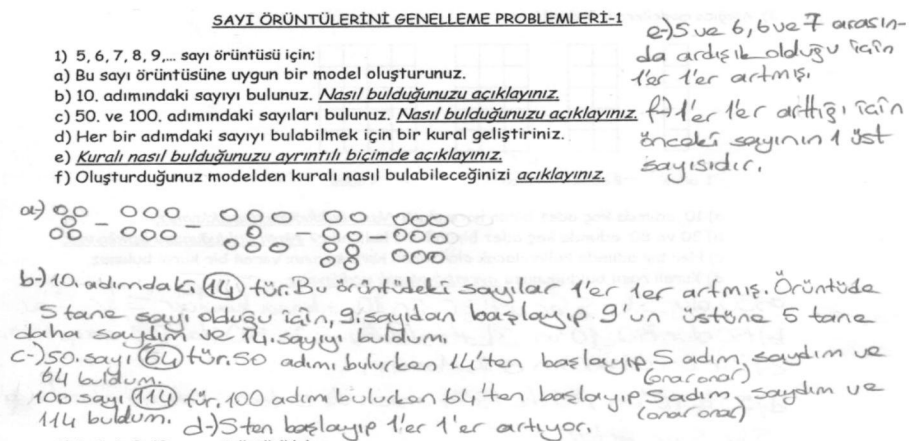 SAYI ÖRÜNTÜLERİNİ GENELLEME PROBLEMLERİ-1
1) 5, 6, 7, 8, 9,... sayı örüntüsü için:
a) Bu sayı örüntüsüne uygun bir model oluşturunuz.
b) 10. adımındaki sayıyı bulunuz. Nasıl bulduğunuzu açıklayınız.
c) 50. ve 100. adımındaki sayıları bulunuz. Nasıl bulduğunuzu açıklayınız.
d) Her bir adımdaki sayıyı bulabilmek için bir kural geliştiriniz.
e) Kuralı nasıl bulduğunuzu ayrıntılı biçimde açıklayınız.
f) Oluşturduğunuz modelden kuralı nasıl bulabileceğinizi açıklayınız.
e-) 5 ve 6, 6 ve 7 arasın-
da ardışık olduğu için
1'er 1'er artmış.
f-) 1'er 1'er arttığı için
önceki sayının 1 üst
sayısıdır.
a-)
b-) 10. adımdaki 14 tür. Bu örüntüdeki sayılar 1'er 1er artmış. Örüntüde
5 tane sayı olduğu için, 9. sayıdan başlayıp 9'un üstüne 5 tane
daha saydım ve 14. sayıyı buldum.
c-) 50. sayı 64 tür. 50 adımı bulurken 14'ten başlayıp 5 adım, saydım ve
(onar onar)
64 buldum.
100 sayı 114 tür. 100 adım bulurken 64'ten başlayıp 5 adım, saydım ve
(onar onar)
114 buldum.
d-) 5ten başlayıp 1'er 1'er artıyor.